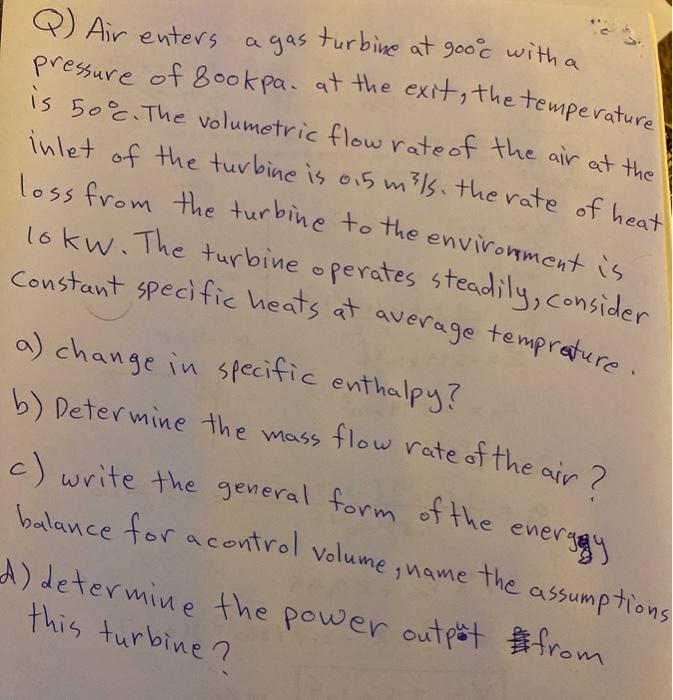 Q) Air enters a gas turbine at 900°c with a
pressure of 800kpa. at the exit, the temperature
is 50°c. The volumetric flow rate of the air at the
inlet of the turbine is 0.5 m³/s. the rate of heat
loss from the turbine to the environment is
16 kW. The turbine operates steadily, consider
Constant specific heats at average temprature.
a) change in specific enthalpy?
b) Determine the mass flow rate of the air?
c) write the general form of the energy
balance for a control volume, name the assumptions
d) determine the power output from
this turbine?